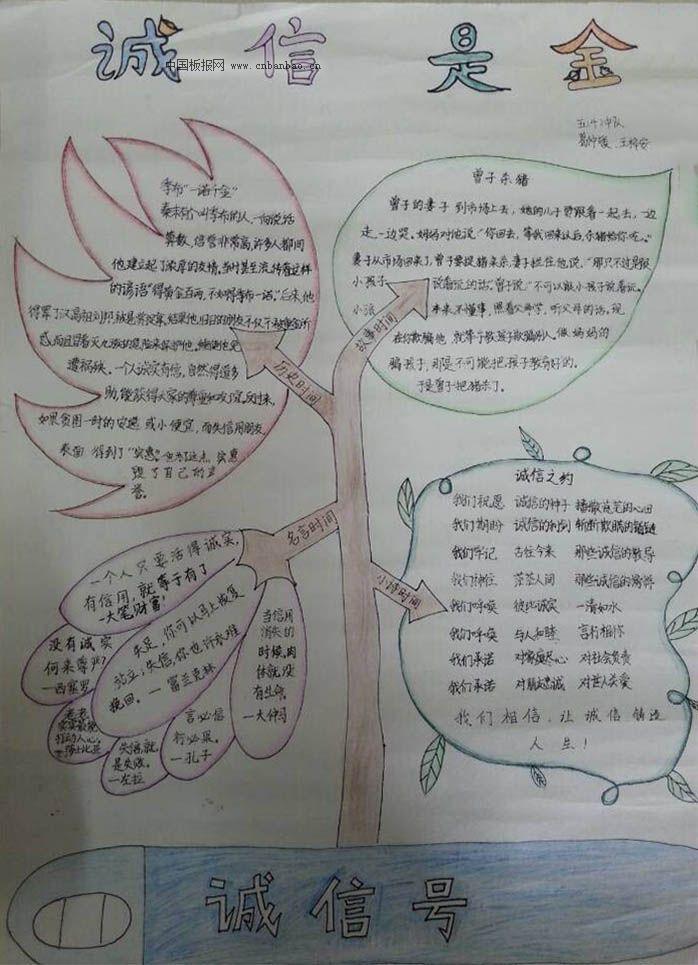 诚信是金
中国板报网 www.cnbanbao.cn
五.4中队
季布"一诺千金"
秦末有个叫季布的人,一向说话
算数,信誉非常高,许多人都同
他建立起了浓厚的友情。当时甚至流传着这样
的谚语:"得黄金百两,不如得季布一诺。"后来,他
得罪了汉高祖刘邦,
遭祸殃。一个人诚实有信,自然得道多
助,能获得大家的尊重和友谊。反过来,
如果贪图一时的安逸或小便宜,而失信用朋友
表面 得到了"实惠"。
毁了自己的声
誉。
历史时间
曾子杀猪
曾子的妻子到市场上去,她的儿子要跟着一起去,一边
走,一边哭。妈妈对他说:"你回去,等我回来以后,杀猪给你吃。"
妻子从市场回来了,曾子要捉猪来杀,妻子拦住他说:"那只不过是跟
小孩子 说着玩的话。"曾子说:"不可以跟小孩子说着玩。
小孩 本来不懂事,照着父母学,听父母的话,现
在你欺骗他,就等于教孩子欺骗别人。做妈妈的
骗孩子,那是不可能把孩子教育好的。
于是曾子把猪杀了。
故事时间
名言时间
一个人只要活得诚实,
有信用,就等于有了
一大笔财富!
没有诚实
何来尊严?
—西塞罗
失足,你可以马上恢复
站立;失信,你也许永难
挽回。—富兰克林
当信用
消失的
时候,肉
体就没
有生命。
—大仲马
打动人心。
—莎士比亚
失信就
是失败。
—左拉
言必信
行必果。
—孔子
小诗时间
诚信之约
我们祝愿 诚信的种子 播撒在笔的心田
我们期盼 诚信的利剑 斩断欺瞒的锁链
我们牢记 古往今来 那些诚信的教导
我们 茫茫人间 那些诚信的
我们呼唤 彼此诚实 一清如水
我们呼唤 与人和睦 言行相依
我们承诺 对家庭尽心 对社会负责
我们承诺 对朋友忠诚 对世人关爱
我们相信,让诚信铸造
人生!
诚信号